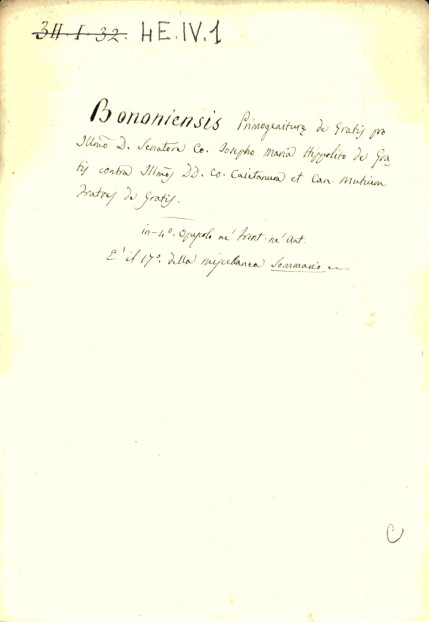 34.I.32. HE.IV.1
Bononiensis Primogenituræ de Gratis pro
Illm̃o D. Senatore Co. Josepho Maria Hippolito de Gra
tis contra Illm̃os DD. Co. Caietanum et Can. Mutium
Fratres de Gratis.
in-4º. Opuscolo nè front. nè ant.
E' il 17º. della miscellanea Sommario
C